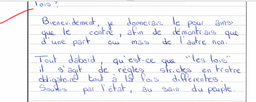 lois ?
Bien évidement, je donnerais le pour ainsi
que le contre, afin de démontrais que
d'une part oui mais de l'autre non.
Tout dabord, qu'est-ce que "les lois"
il s'agit de règles strictes en
obligatoire tout à fois différentes.
par l'état, au sein du peuple.